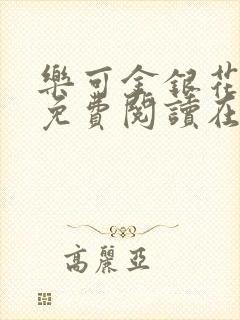 樂可金銀花
免費閱讀在
高麗亞